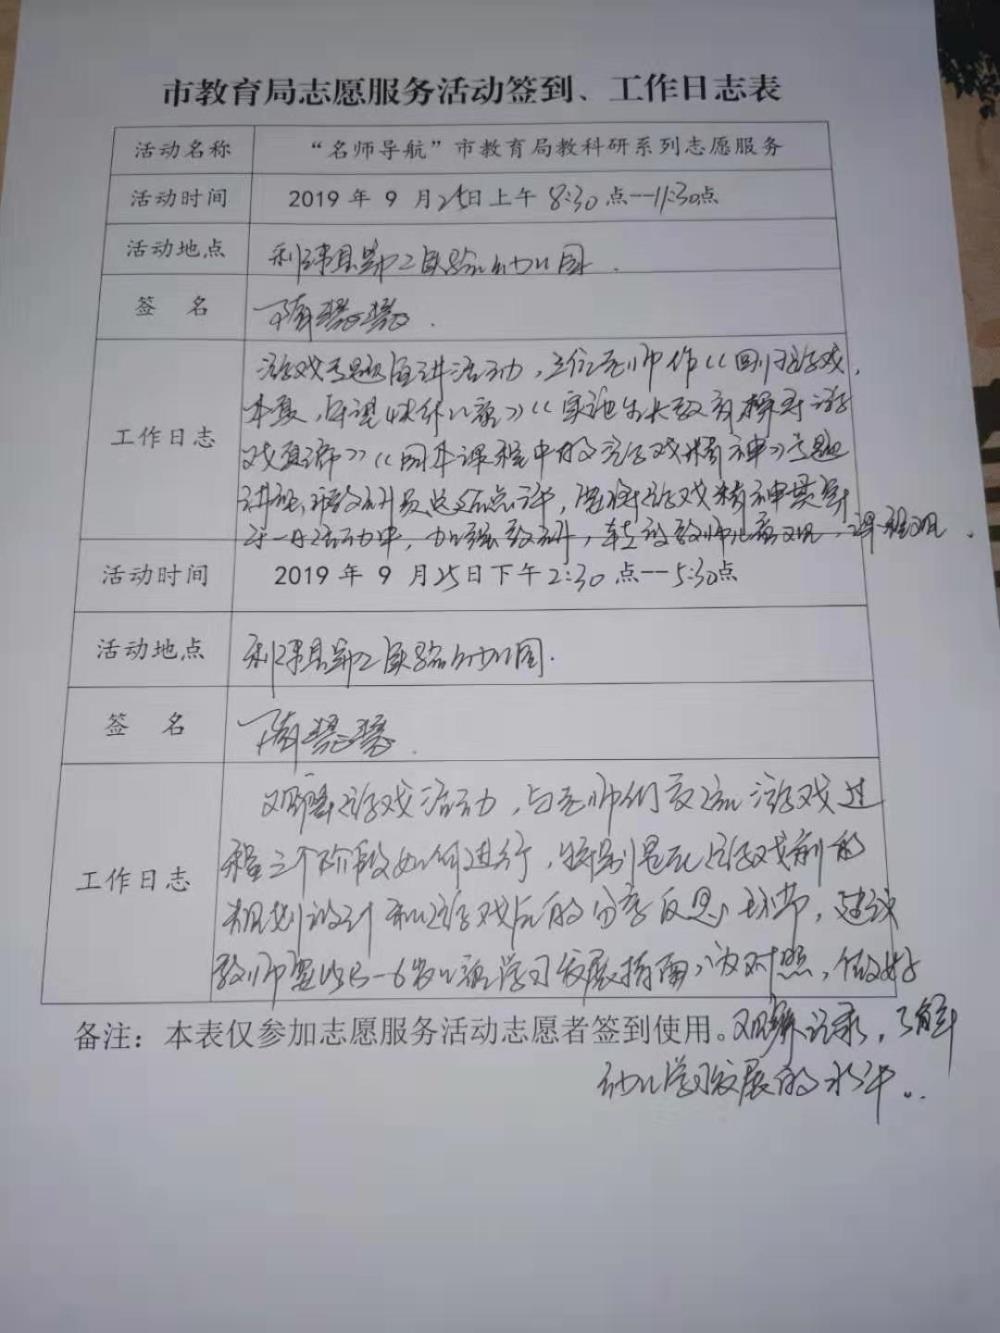 市教育局志愿服务活动签到、工作日志表
活动名称 “名师导航”市教育局教科研系列志愿服务
活动时间 2019年9月25日上午8:30点—11:30点
活动地点 利津县第二实验幼儿园.
签 名
工作日志 游戏专题宣讲活动,三位老师作《回归游戏
本真,》《实施生长教育探寻游
戏真谛》《园本课程中的游戏精神》专题
讲座,点评,将游戏精神贯穿
于一日活动中,加强教研,转变教师儿童观,课程观.
活动时间 2019年9月25日下午2:30点—5:30点
活动地点 利津县第二实验幼儿园.
签 名
工作日志 观摩游戏活动,与老师们交流游戏过
程三个阶段如何进行,特别是游戏前的
规划设计和游戏后的分享反思环节,建议
教师要以3-6岁儿童学习发展指南为对照,做好
备注：本表仅参加志愿服务活动志愿者签到使用。观察记录,了解
幼儿学习发展的水平..